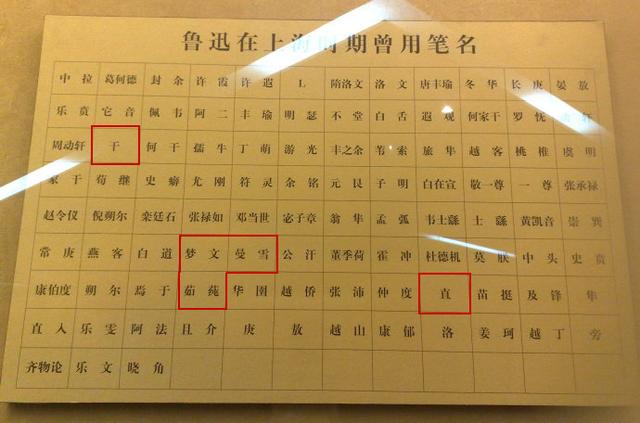 鲁迅在上海时期曾用笔名
中拉 葛何德 封余 许霞 许遐 L 隋洛文 洛文 唐丰瑜 冬华 长庚 晏敖
乐贲 它音 佩韦 阿二 丰瑜 明瑟 不堂 白舌 遐观 何家干 罗怃
周动轩 干 何干 孺牛 丁萌 游光 丰之余 苇索 旅隼 越客 桃椎 虞明
家干 荀继 史癖 尤刚 符灵 余铭 元艮 子明 白在宣 敬一尊 一尊 张承禄
赵令仪 倪朔尔 栾廷石 张禄如 邓当世 宓子章 翁隼 孟弧 韦士繇 士繇 黄凯音 崇巽
常庚 燕客 白道 梦文 曼雪 公汗 董季荷 霍冲 杜德机 莫朕 中头 史贲
康伯度 朔尔 焉于 茹莼 华圉 越侨 张沛 仲度 直 苗挺 及锋 隼
直入 乐雯 阿法 且介 庚 敖 越山 康郁 洛 姜珂 越丁 旁
齐物论 乐文 晓角